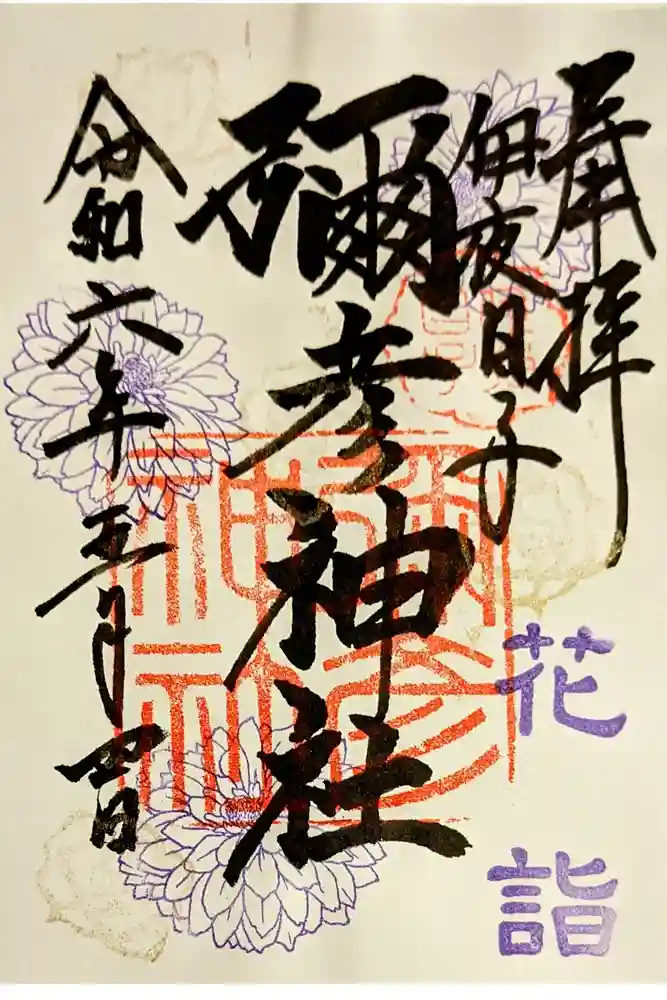 奉拝
伊夜日子
彌彦神社
令和六年五月四日
花詣
彌彦神社